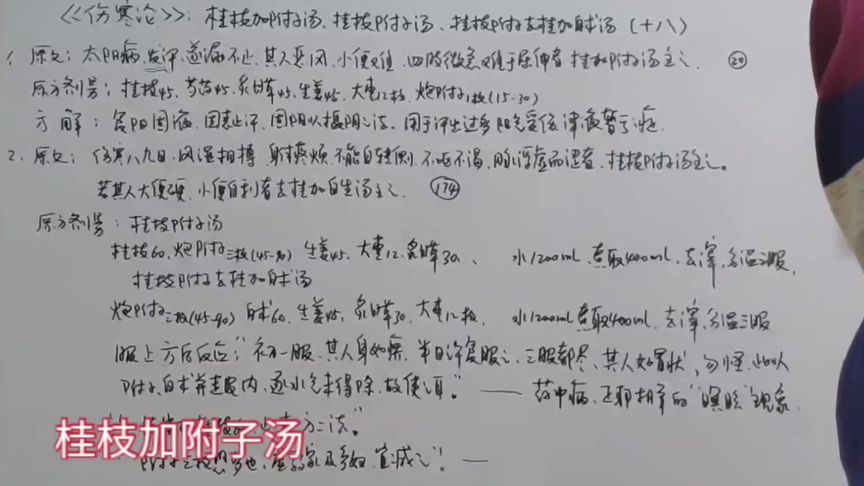 《伤寒论》：桂枝加附子汤、桂枝附子汤、桂枝附子去桂加白术汤（十八）
1. 原文：太阳病，发汗，遂漏不止，其人恶风，小便难，四肢微急，难于屈伸者，桂枝加附子汤主之。 20
原方剂量：桂枝45、芍药45、炙甘草45、生姜45、大枣12枚、炮附子1枚(15-30)
方解：复阳固表，固表止汗，固阳以摄阴之法，用于汗出过多
2. 原文：伤寒八九日，风湿相搏，身疼烦，不能自转侧，不呕不渴，脉浮虚而涩者，桂枝附子汤主之。
若其人大便硬，小便自利者，去桂加白术汤主之。 174
原方剂量：桂枝附子汤
桂枝60、炮附子三枚(45-90) 生姜45、大枣12、炙甘草30、 水1200ml，煮取400ml，去滓，分温三服，
桂枝附子去桂加白术汤
炮附子三枚(45-90) 白术60、生姜45、炙甘草30、大枣12枚、 水1200ml煮取400ml，去滓，分温三服
服上方后反应："初一服，其人身如痹，半日许复服之，三服都尽，其人如冒状，勿怪，此以
附子、白术并走皮内，逐水气未得除，故使之耳。" —— 药中病，正邪相争的"瞑眩"现象
二法。"
附子三枚恐多也，虚弱家及产妇，宜减之"。——
桂枝加附子汤